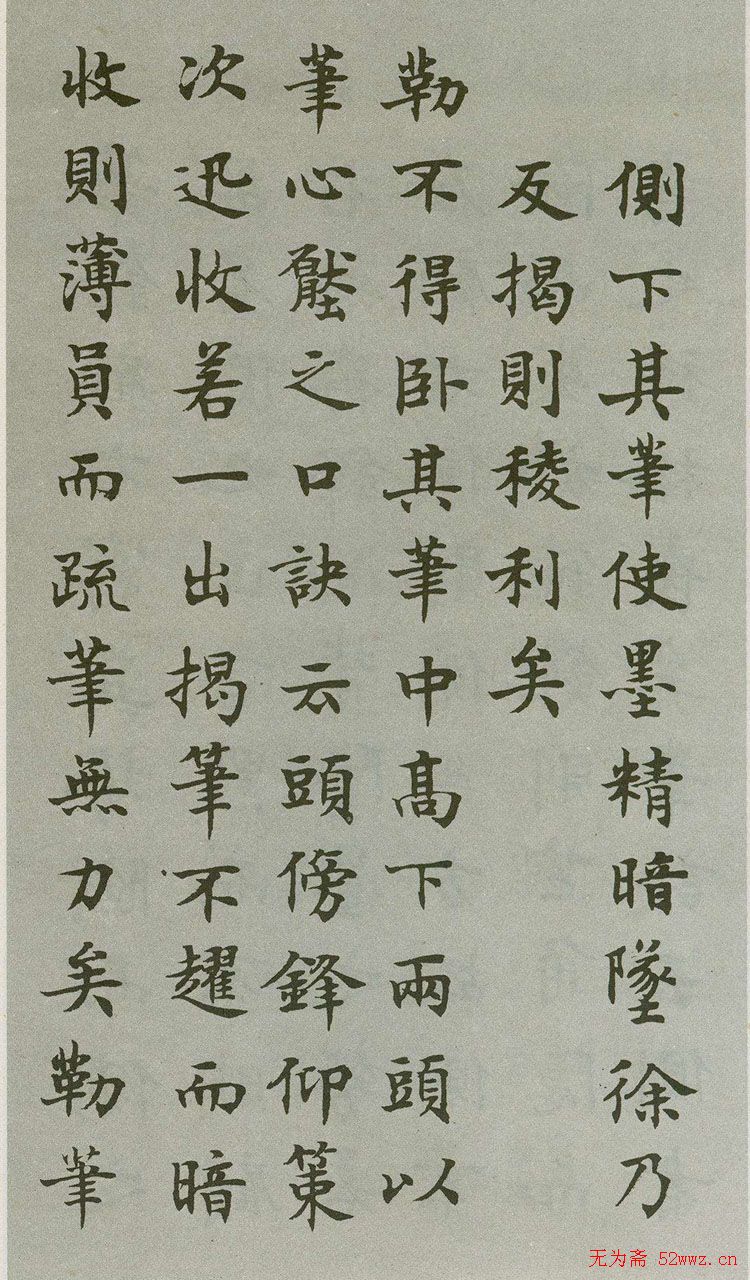 側下其筆使墨精暗墜徐乃
反揭則稜利矣
勒不得卧其筆中髙下兩頭以
筆心壓之口訣云頭傍鋒仰策
次迅收若一出揭筆不趯而暗
收則薄員而疏筆無力矣勒筆
无为斋 52wwz.cn